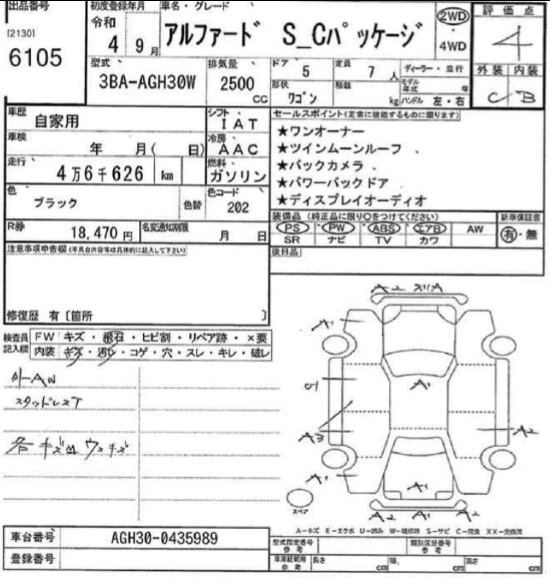 出品番号 初度登録年月 車名・グレード 2WD 評価点
[2130] 令和
6105 4 9月 アルファード S_Cパッケージ 4WD 4
型式 排気量 ドア 定員 ディーラー・並行 外装 内装
3BA-AGH30W 2500 CC 5 7人 モデル年式 年 C B
形状 積載
ワゴン kg ハンドル 左・右
車歴 シフト セールスポイント(正常に機能するものに限ります)
自家用 IAT ★ワンオーナー
車検 冷房 ★ツインムーンルーフ 、
年 月( 日) AAC ★バックカメラ 、
走行 燃料 ★パワーバックドア
4万6千626 km ガソリン ★ディスプレイオーディオ
色 色コード
ブラック 色替 202
R券 名変通知期限 装備品(純正品に限り○をつけてください) 新車保証書
18,470円 月 日 PS PW ABS エアB AW 有・無
SR ナビ TV カワ
注意事項申告欄(不具合内容等は具体的に記入して下さい) 後日品
修復歴 有〔箇所 〕
検査員記入欄 FW キズ・飛石・ヒビ割・リペア跡・×要
内装 キズ・汚レ・コゲ・穴・スレ・キレ・破レ
外-AW
スタッドレスT
各キズ
A2 スリA
A1
A1
A3 A2
A1 A1
A2 A1 A2
スペア
A-キズ E-エクボ U-凹み W-補修跡 S-サビ C-腐食 XX-交換済
車台番号 AGH30-0435989 型式指定番号 参考 類別区分番号 参考
登録番号 車庫証明用 参考 長さ cm 幅 cm 高さ cm